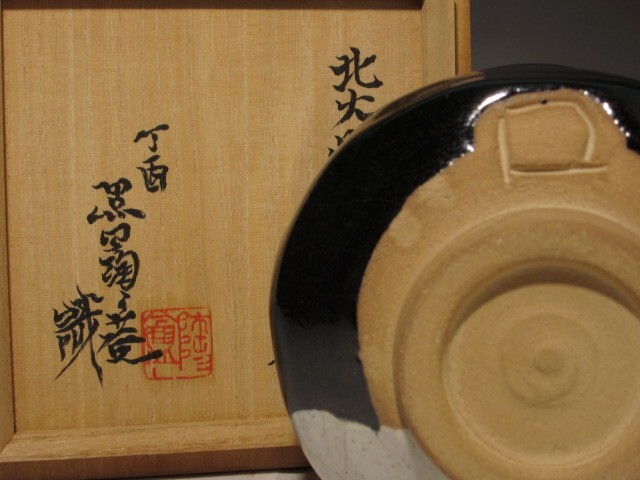 北大
丁酉
黒田陶々菴
識